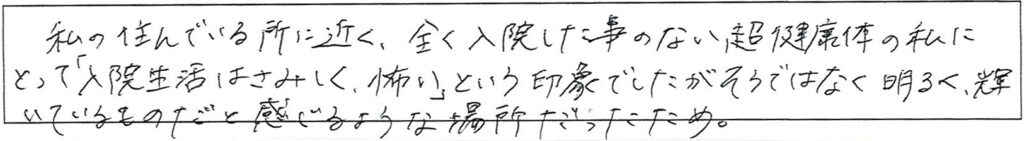 私の住んでいる所に近く、全く入院した事のない超健康体の私に
とって「入院生活はさみしく、怖い」という印象でしたがそうではなく明るく、輝
いているものだと感じるような場所だったため。